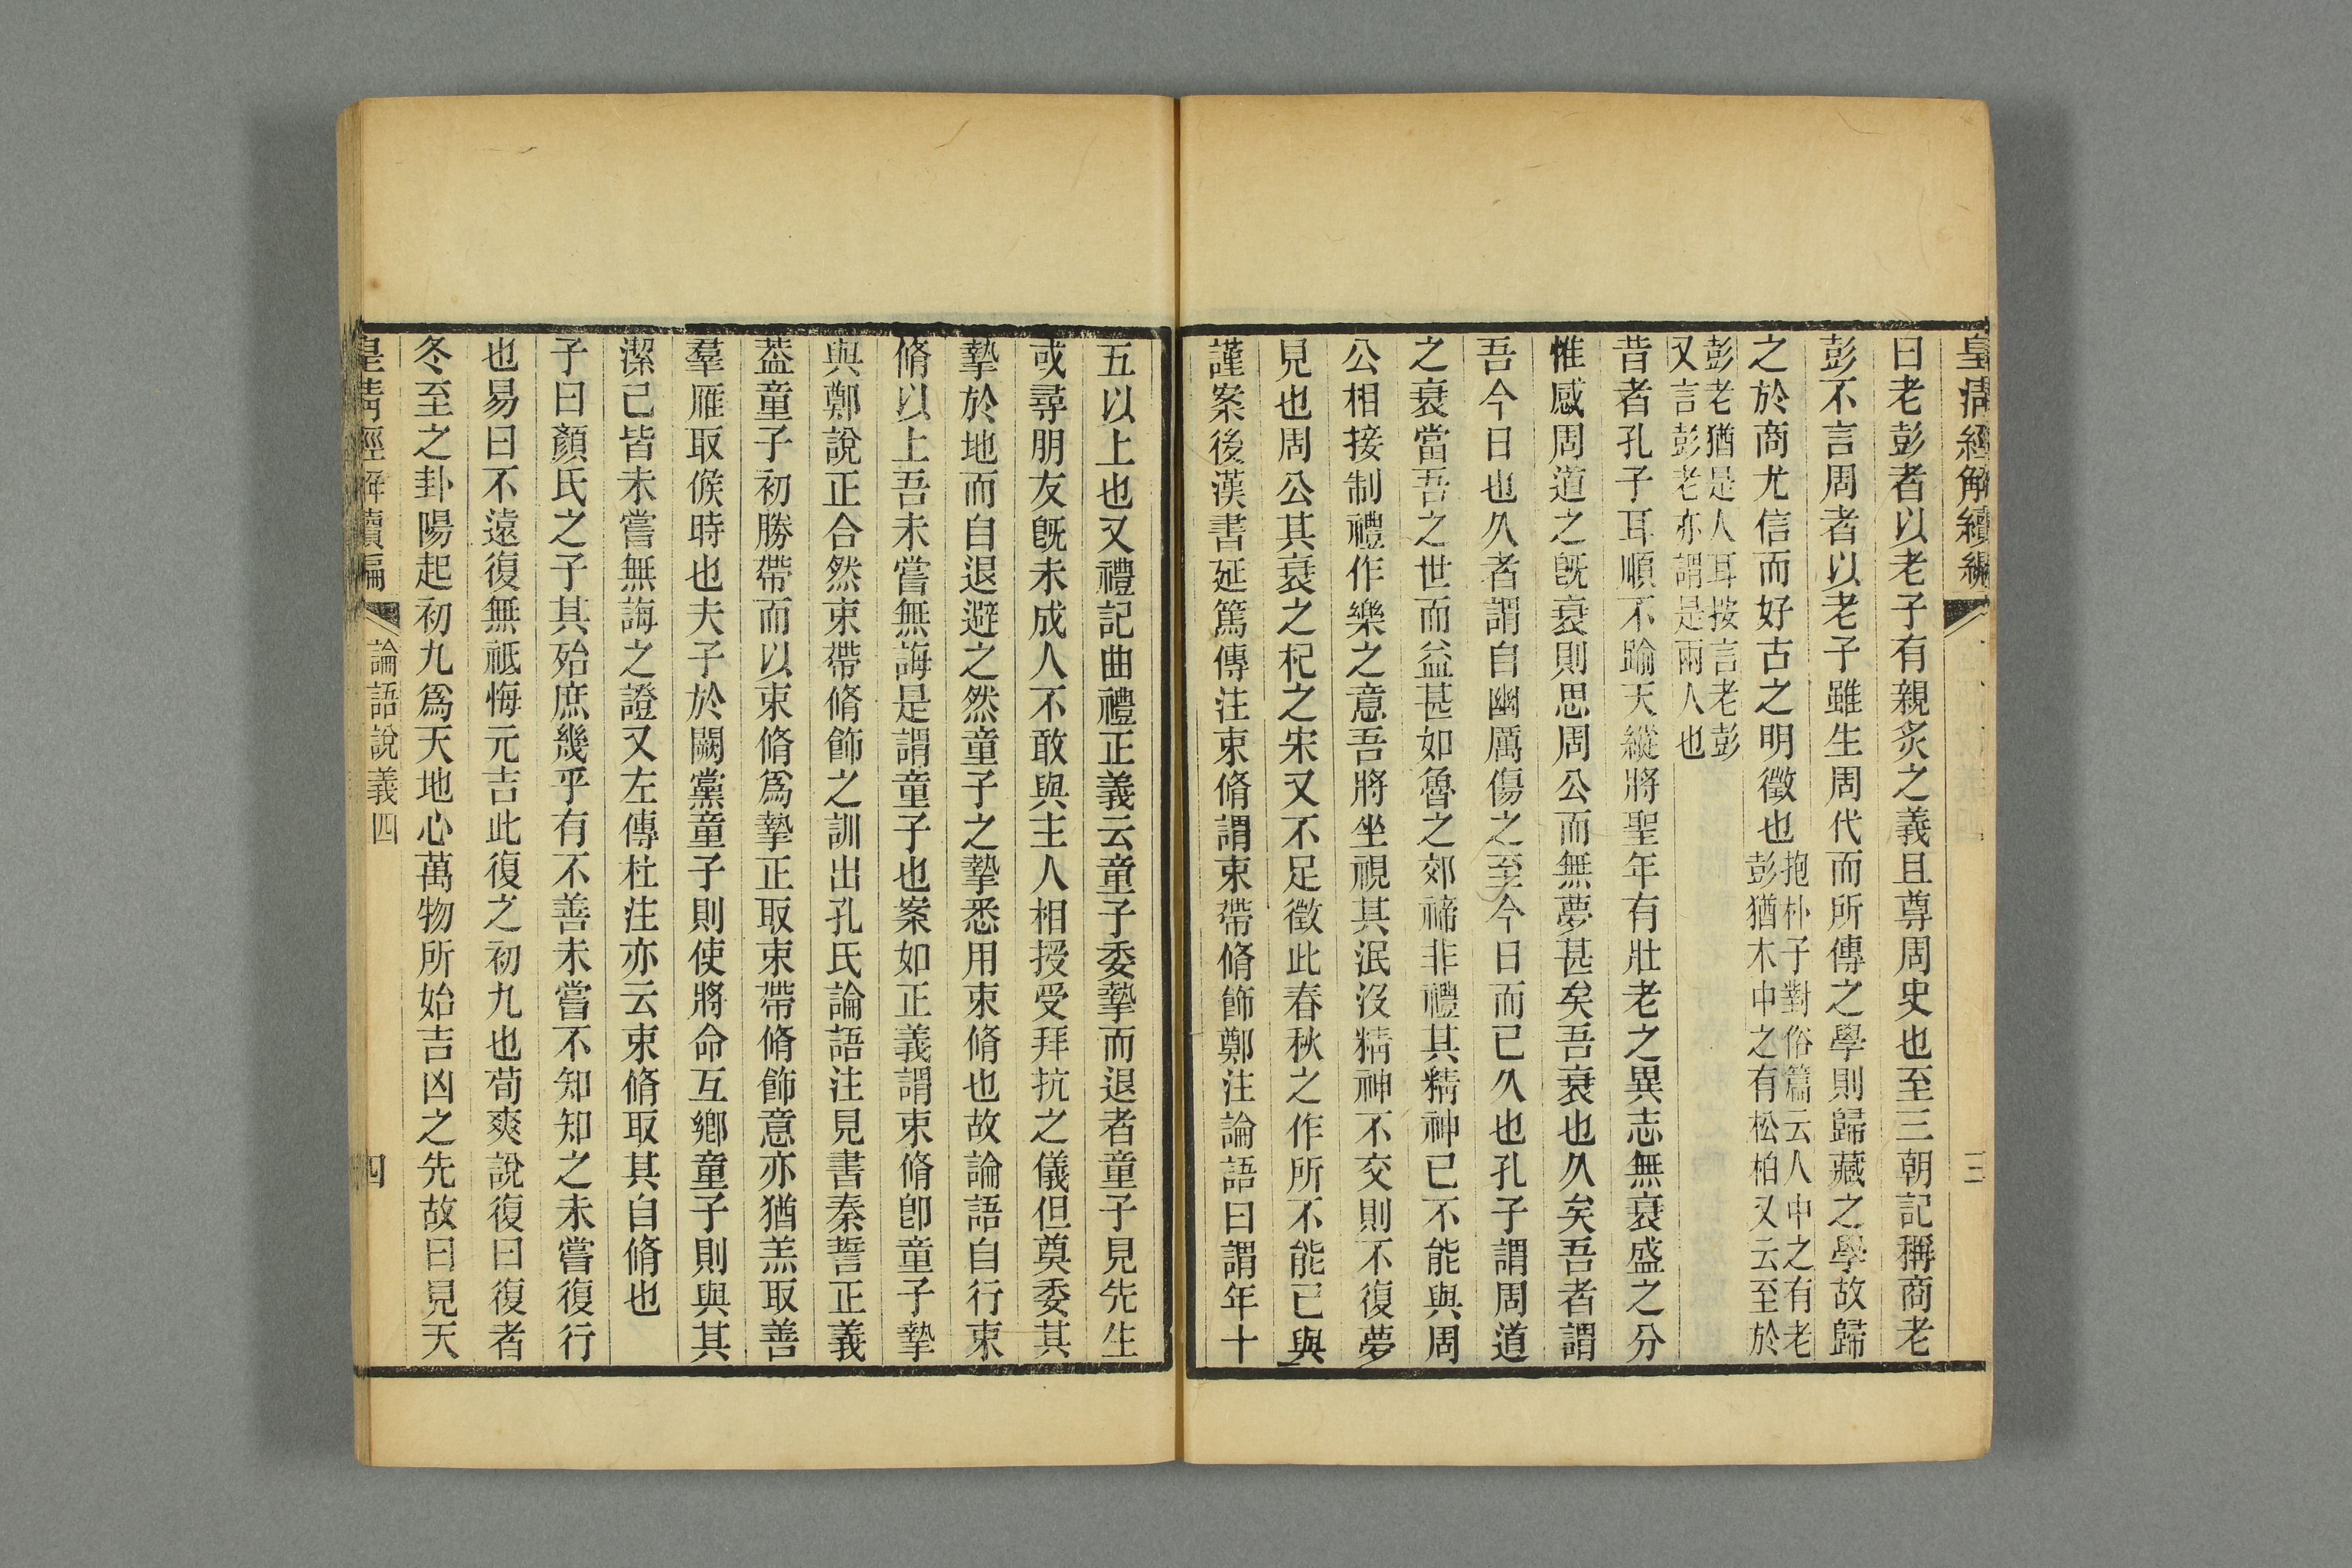 皇淸經解續編
三
曰老彭者以老子有親炙之義且尊周史也至三朝記稱商老
彭不言周者以老子雖生周代而所傳之學則歸藏之學故歸
之於商尤信而好古之明徵也
抱朴子對俗篇云人中之有老
彭猶木中之有松柏又云至於
彭老猶是人耳按言老彭
又言彭老亦謂是兩人也
昔者孔子耳順不踰天縱將聖年有壯老之異志無衰盛之分
惟感周道之旣衰則思周公而無夢甚矣吾衰也久矣吾者謂
吾今日也久者謂自幽厲傷之至今日而已久也孔子謂周道
之衰當吾之世而益甚如魯之郊禘非禮其精神已不能與周
公相接制禮作樂之意吾將坐視其泯沒精神不交則不復夢
見也周公其衰之杞之宋又不足徵此春秋之作所不能已與
謹案後漢書延篤傳注束脩謂束帶脩飾鄭注論語曰謂年十
五以上也又禮記曲禮正義云童子委摯而退者童子見先生
或尋朋友旣未成人不敢與主人相授受拜抗之儀但奠委其
摯於地而自退避之然童子之摯悉用束脩也故論語自行束
脩以上吾未嘗無誨是謂童子也案如正義謂束脩卽童子摯
與鄭說正合然束帶脩飾之訓出孔氏論語注見書秦誓正義
葢童子初勝帶而以束脩爲摯正取束帶脩飾意亦猶羔取善
羣雁取候時也夫子於闕黨童子則使將命互鄉童子則與其
潔己皆未嘗無誨之證又左傳杜注亦云束脩取其自脩也
子曰顏氏之子其殆庶幾乎有不善未嘗不知知之未嘗復行
也易曰不遠復無祗悔元吉此復之初九也荀爽說復曰復者
冬至之卦陽起初九爲天地心萬物所始吉凶之先故曰見天
皇淸經解續編
論語說義四
四